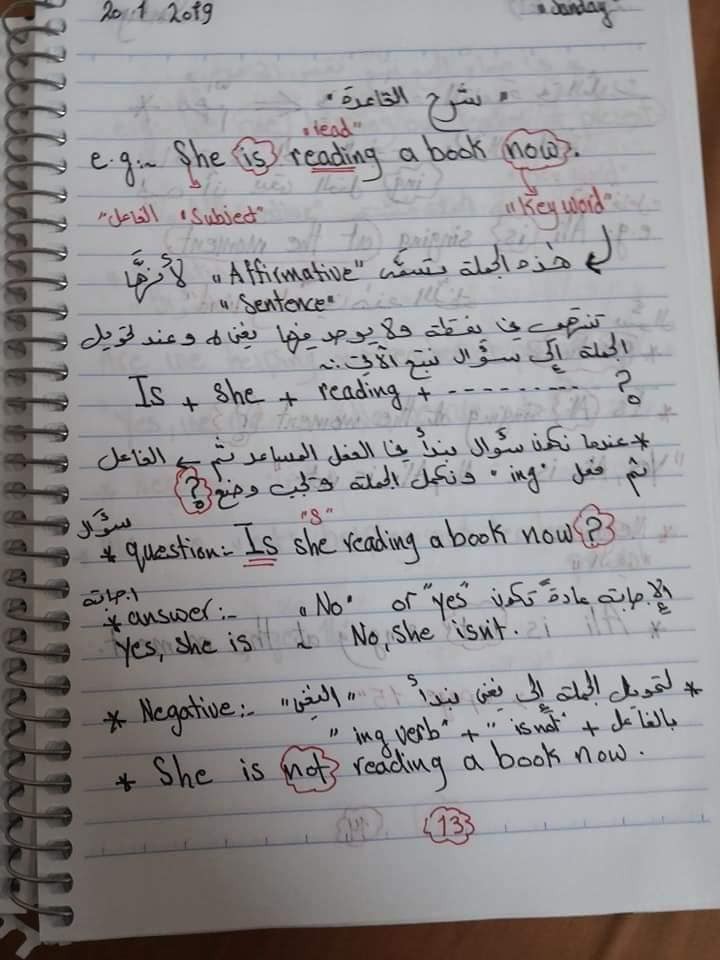 20 1 2019 "Sanday"
" شرح القاعدة "
"lead"
e.g:- She is reading a book now.
"الفاعل "Subject" "Key word"
هذه الجملة تسمَّى "Affirmative" لأنهَّا
"Sentence"
تنتهي في نقطة ولا يوجد فيها نفي، وعند تحويل
الجملة إلى سؤال نتبع الآتي :-
Is + she + reading + ---------- ?
* عندما نكون سؤال نبدأ بالفعل المساعد ثم الفاعل
ثم فعل "ing" ونكمل الجملة ويجب وضع ?
سؤال "S"
* question:- Is she reading a book now ?
اجابة
* answer:- "No" or "yes" الإجابة عادةً تكون
yes, she is No, she isn't.
* Negative:- "النفي" لتحويل الجملة إلى نفي نبدأ *
بالفاعل + "is not" + "ing verb"
* She is not reading a book now.
13